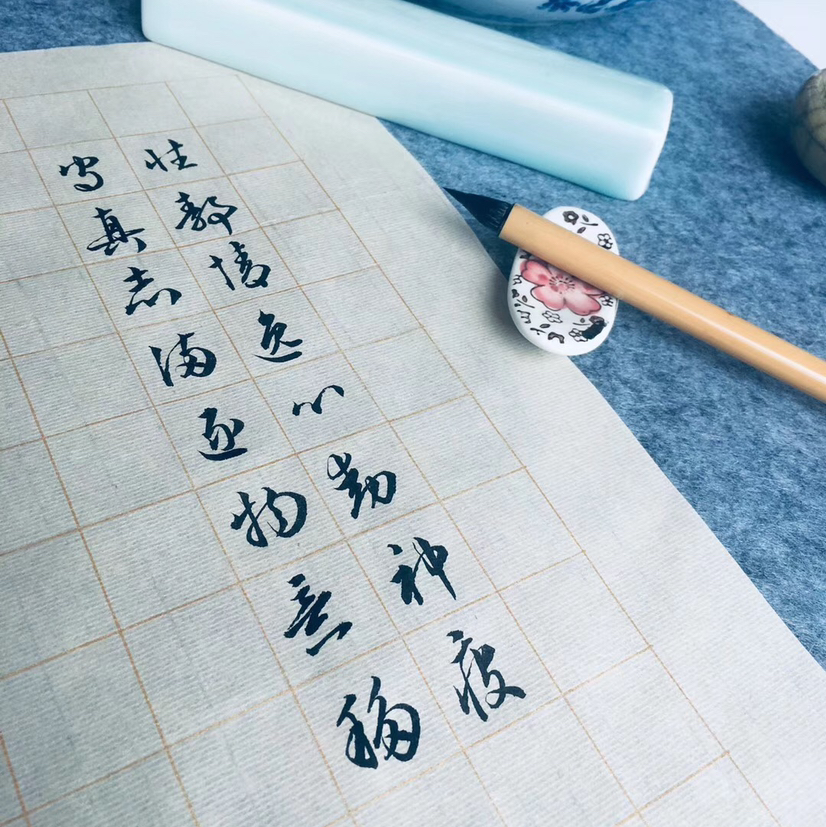 性静情逸心動神疲
守真志滿逐物意移